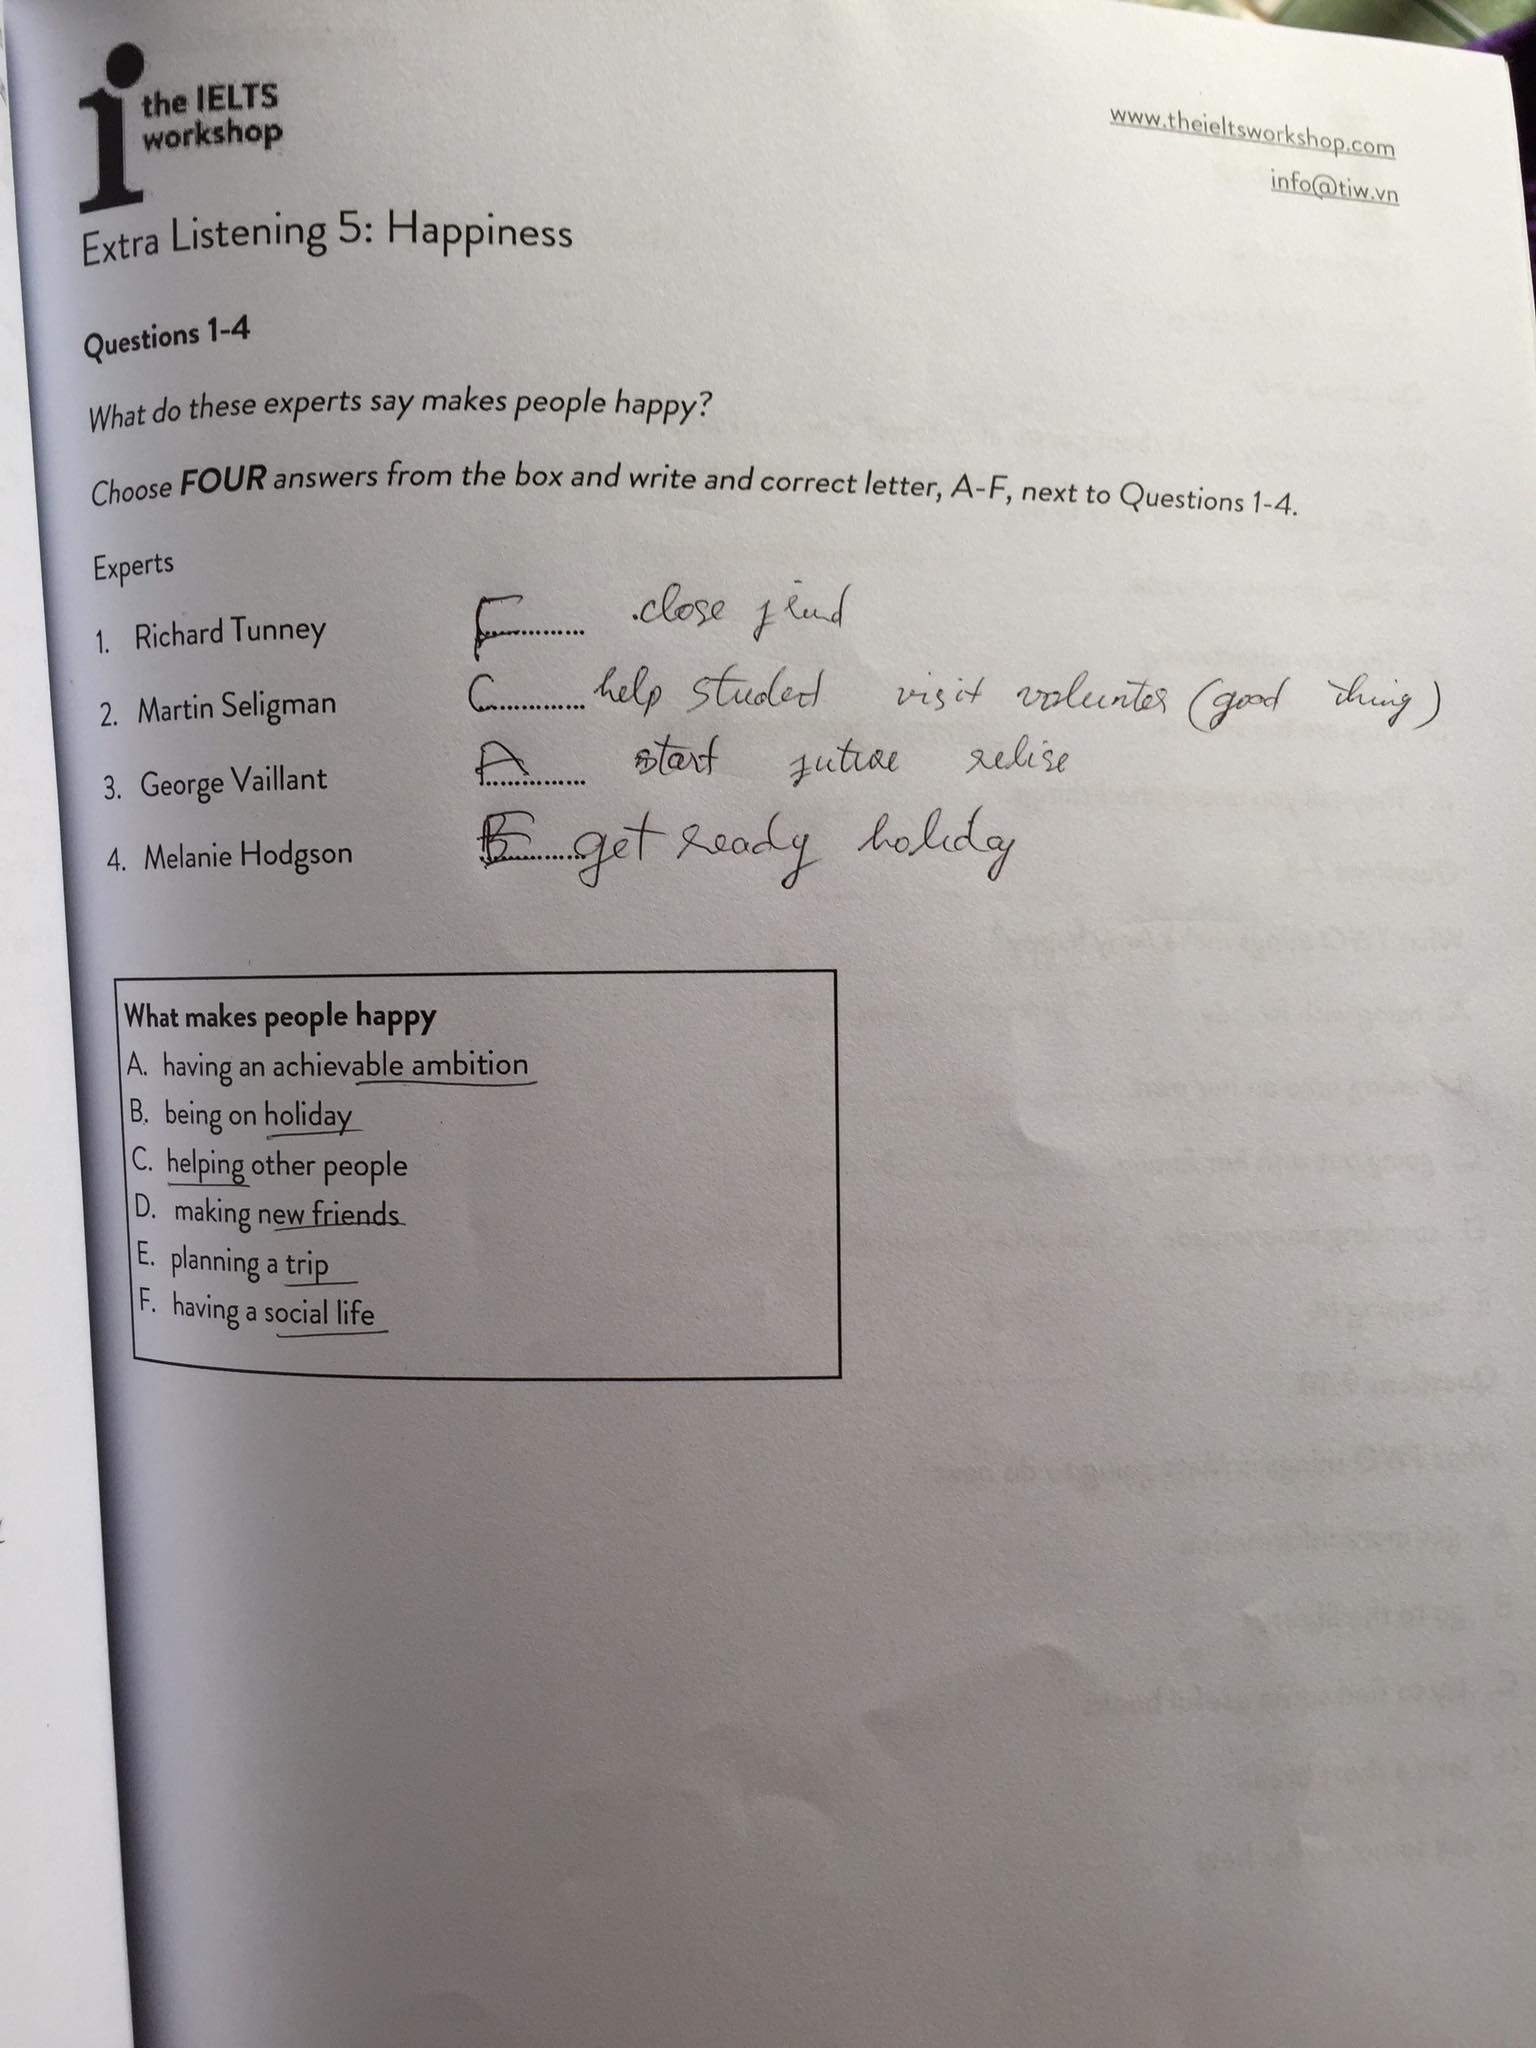 the IELTS
workshop
www.theieltsworkshop.com
info@tiw.vn
Extra Listening 5: Happiness
Questions 1-4
What do these experts say makes people happy?
Choose FOUR answers from the box and write and correct letter, A-F, next to Questions 1-4.
Experts
1. Richard Tunney F............ .close
2. Martin Seligman C............ help student visit volunter (good thing)
3. George Vaillant A............ start future relise
4. Melanie Hodgson ............ get ready holiday
What makes people happy
A. having an achievable ambition
B. being on holiday
C. helping other people
D. making new friends
E. planning a trip
F. having a social life